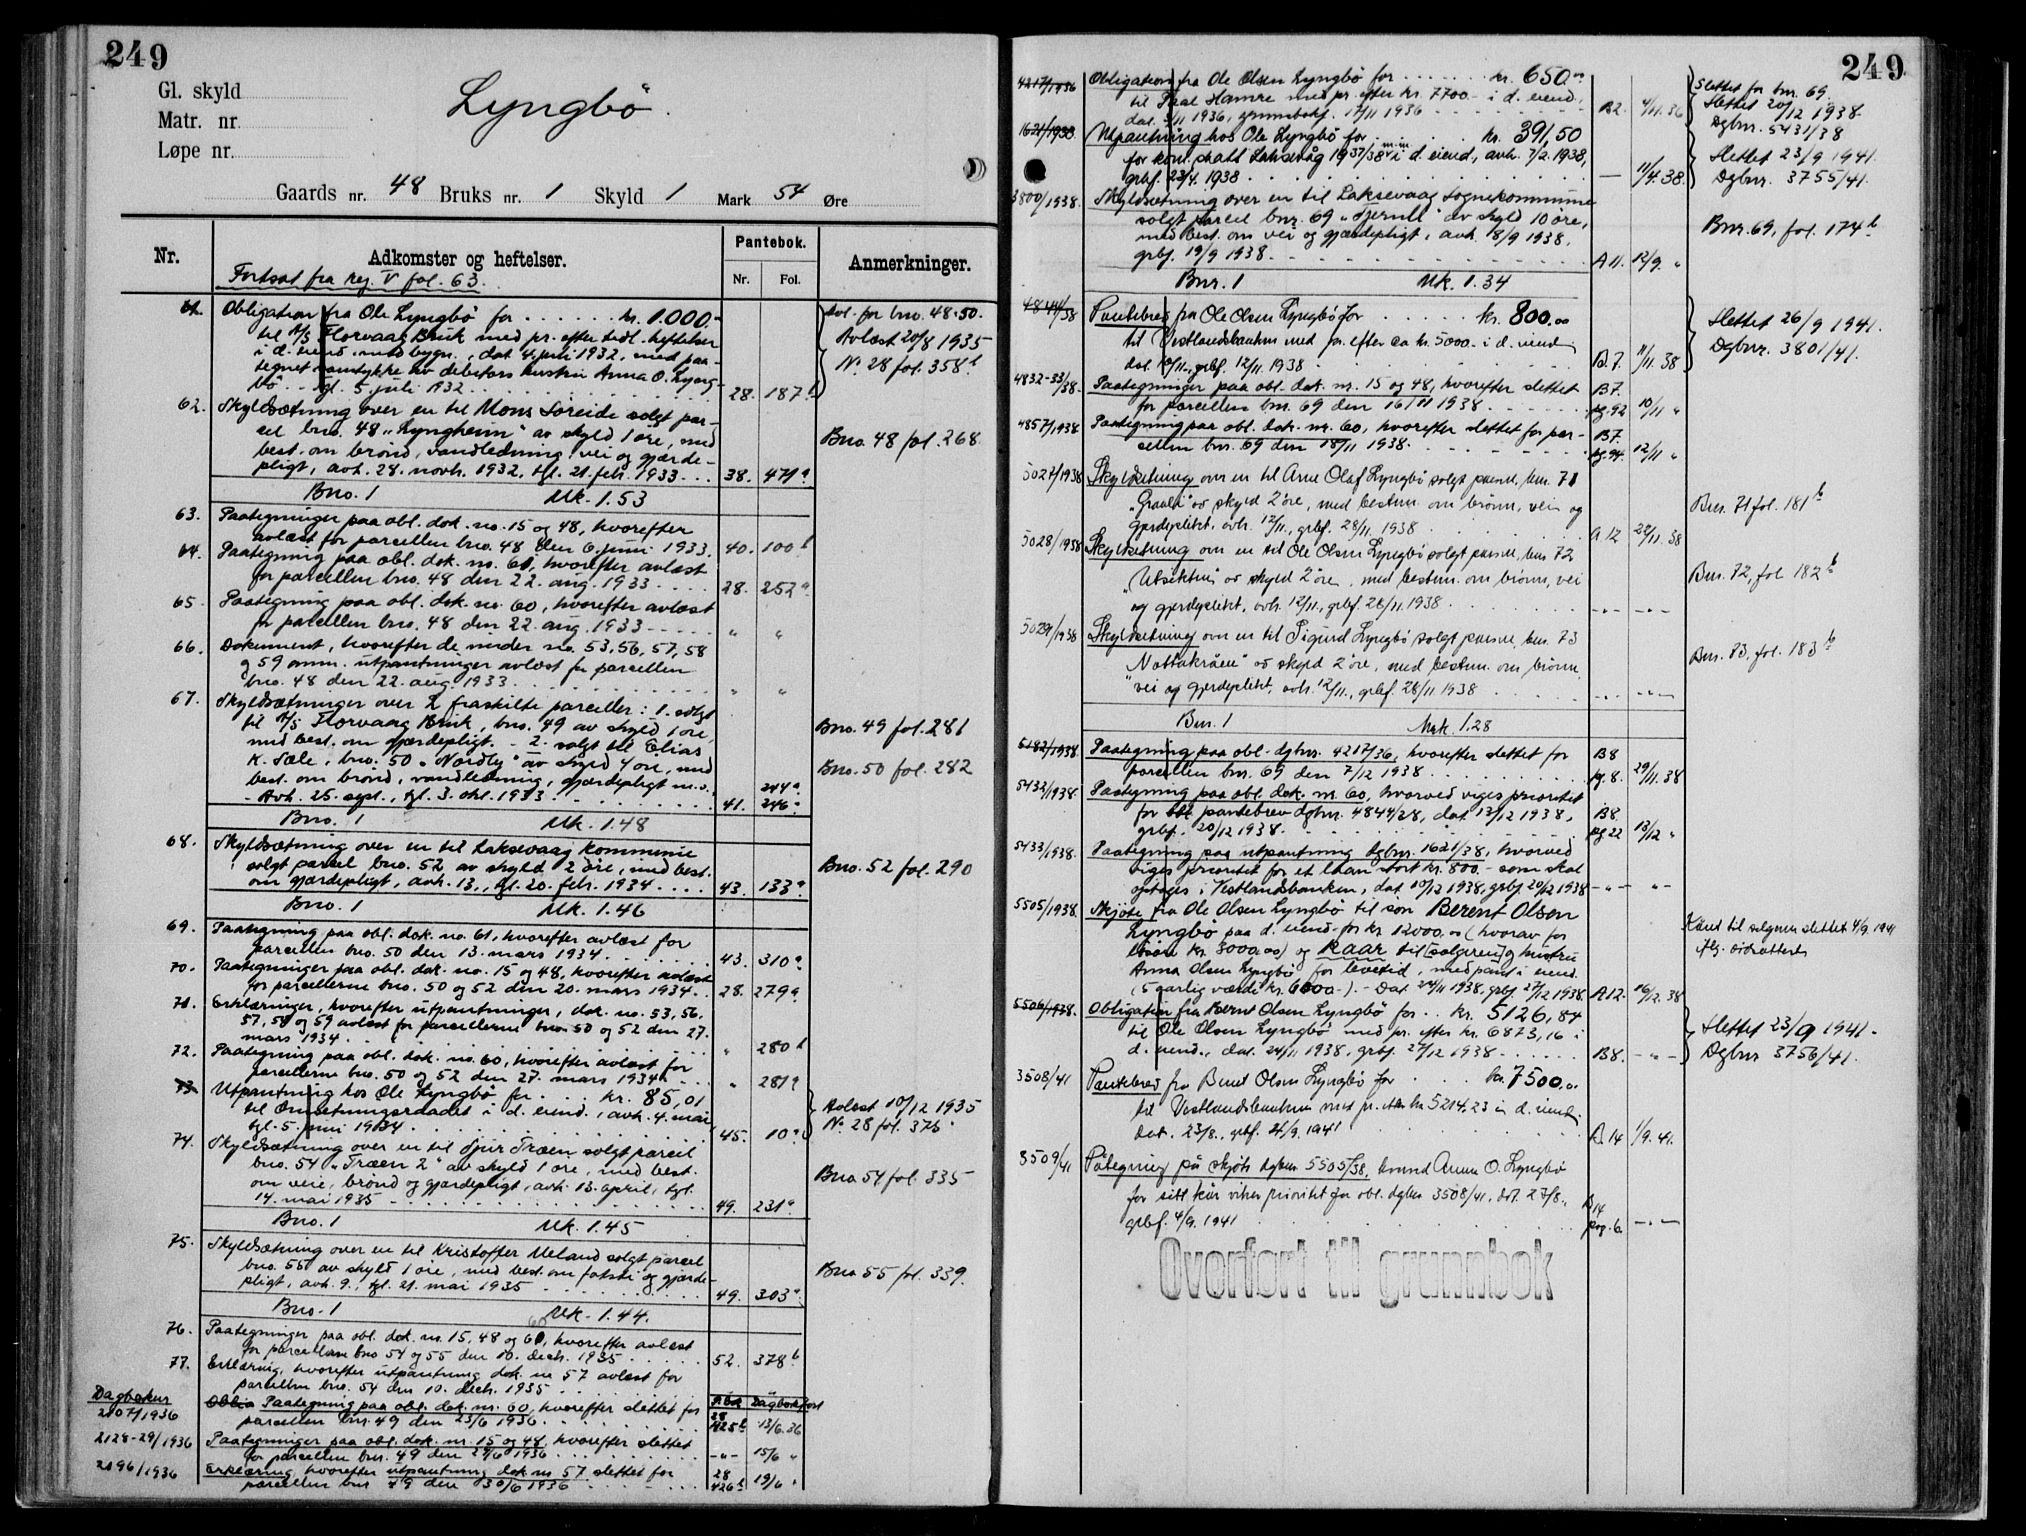 249
Gl. skyld
Matr. nr.
Løpe nr.
Lyngbö
Gaards nr. 48 Bruks nr. 1 Skyld 1 Mark 54 Øre
Nr.
Adkomster og heftelser.
Pantebok.
Nr. Fol.
Anmerkninger.
Fortsat fra reg. V fol. 63.
61. Obligation fra Ole Lyngbö for kr. 1.000.-
til A/S Florvaag Bruk med pr. efter tidl. heftelser
i d. eiend. med bygn., dat. 4. juli 1932, med paa-
tegnet samtykke av debitors hustru Anna O. Lyng-
bö. - tgl. 5. juli 1932. 28. 187 b
Avl. for bno. 48-50.
Avlæst 20/8 1935
No. 28 fol. 358 b
62. Skyldsætning over en til Mons Soreide solgt par-
cel bno. 48 "Lyngheim" av skyld 1 øre, med
best. om brønd, vandledning, vei og gjærde-
pligt, avh. 28. novb. 1932, tgl. 21. febr. 1933. 38. 471 a
Bno. 48 fol. 268
Bno. 1 Mk. 1.53
63. Paategninger paa obl. dok. no. 15 og 48, hvorefter
avlæst for parcellen bno. 48 den 6. juni 1933. 40. 100 b
64. Paategning paa obl. dok. no. 61, hvorefter avlæst
for parcellen bno. 48 den 22. aug. 1933. 28. 252 a
65. Paategning paa obl. dok. no. 60, hvorefter avlæst
for parcellen bno. 48 den 22. aug. 1933 " "
66. Dokument, hvorefter de under no. 53, 56, 57, 58
og 59 anm. utpantninger avlæst for parcellen
bno. 48 den 22. aug. 1933. " "
67. Skyldsætninger over 2 fraskilte parceller: 1. solgt
til A/S Florvaag Bruk, bno. 49 av skyld 1 øre,
med best. om gjærdepligt. - 2. solgt til Elias
K. Sæle, bno. 50 "Nordly" av skyld 4 øre, med
best. om brönd, vandledning, gjærdepligt m.v.
- Avh. 25. sept., tgl. 3. okt. 1933. 41. 244 a 246 a
Bno. 49 fol. 281
Bno. 50 fol. 282
Bno. 1 Mk. 1.48
68. Skyldsætning over en til Laksevaag kommune
solgt parcel bno. 52 av skyld 2 øre, med best.
om gjærdepligt, avh. 13., tgl. 20. febr. 1934. 43. 133 a
Bno. 52 fol. 290
Bno. 1 Mk. 1.46
69. Paategning paa obl. dok. no. 61, hvorefter avlæst for
parcellen bno. 50 den 13. mars 1934. 43. 310 a
70. Paategninger paa obl. dok. no. 15 og 48, hvorefter avlæst
for parcellerne bno. 50 og 52 den 20. mars 1934. 28. 279 a
71. Erklæringer, hvorefter utpantninger, dok. no. 53, 56,
57, 58 og 59 avlæst for parcellerne bno. 50 og 52 den 27.
mars 1934. " 280 b
72. Paategning paa obl. dok. no. 60, hvorefter avlæst for
parcellerne bno. 50 og 52 den 27. mars 1934. " 281 a
73. Utpantning hos Ole Lyngbö for kr. 85,01
til Omsetningsraadet i d. eiend., avh. 4. mai
tgl. 5. juni 1934. 45. 10 a
Avlæst 10/12 1935
No. 28 fol. 376
74. Skyldsætning over en til Sjur Træen solgt parcel
bno. 54 "Træen 2" av skyld 1 øre, med best.
om veie, brönd og gjærdepligt, avh. 13. april, tgl.
14. mai 1935 49. 231 a
Bno 54 fol. 335
Bno. 1 Mk. 1.45
75. Skyldsætning over en til Kristoffer Meland solgt parcel
bno. 55 av skyld 1 øre, med best. om fotsti og gjærde-
pligt, avh. 9., tgl. 21. mai 1935 49. 303 a
Bno 55 fol. 339.
Bno. 1 Mk. 1.44.
76. Paategninger paa obl. dok. nr. 15, 48 og 60, hvorefter avlæst
for parcellene bno 54 og 55 den 10. decb. 1935 52. 378 b
77. Erklæring, hvorefter utpantning dok. no 57 avlæst for
parcellen bno. 54 den 10. decb. 1935 " "
Dagboknr P.bok Dagbokført
2107/1936 Paategning paa obl. dok. nr. 60, hvorefter slettet for
parcellen bnr. 49 den 23/6 1936. 28 425 b 13/6.36
2128-29/1936 Paategninger paa obl. dok. nr. 15 og 48, hvorefter slettet
for parcellen bnr. 49 den 29/6 1936 -"- 15/6 "
2196/1936 Erklæring hvorefter utpantning dok. nr 57 slettet for
parcellen bnr 49 den 30/6 1936 28 426 b 19/6 "
249
4217/1936 Obligation fra Ole Olsen Lyngbö for kr. 650.00
til Paal Hamre med pr. efter kr. 7700.- i d. eiend.,
dat. 3/11 1936, grunnbokf. 17/11 1936 B2. 4/11.36
Slettet for bnr. 69.
Slettet 20/12 1938
Dgbnr. 5431/38
1621/1938. Utpantning hos Ole Lyngbö for kr. 391,50
for kom. skatt Laksevåg 1937/38 m.m. i d. eiend., avh. 7/2. 1938,
grbf. 23/4. 1938 — 11/4.38.
Slettet 23/9 1941.
Dgbnr. 3755/41.
3800/1938. Skyldsætning over en til Laksevaag sognekommune
solgt parcel bnr. 69 av skyld 10 øre,
med best. om vei og gjærdepligt, avh. 8/9 1938,
grbf. 19/9 1938. A11. 12/9. "
Bnr. 69, fol. 174 b
Bnr. 1 Mk. 1.34
4844/38 Pantebrev fra Ole Olsen Lyngbö for kr. 800.00
til Vestlandsbanken med pr. efter ca kr. 5000.- i d. eiend.
dat. 10/11., grbf. 12/11. 1938 B.7. 11/11.38
Slettet 26/9 1941.
Dgbnr. 3801/41.
4832-33/38. Paategninger paa obl. dok. nr. 15 og 48, hvorefter slettet
for parcellen bnr. 69 den 16/11 1938 B7. pg.92 10/11 "
4857/1938 Paategning paa obl. dok. nr. 60, hvorefter slettet for par-
cellen bnr. 69 den 18/11 1938. B7. pg.94. 12/11 "
5027/1938 Skyldsetning om en til Arne Olaf Lyngbö solgt parsel, bnr. 71
av skyld 2 øre, med bestem. om brønn, vei og
gjerdeplikt, avh. 12/11., grbf. 28/11. 1938 A 12 22/11.38
Bnr. 71 fol. 181 b
5028/1938 Skyldsetning om en til Ole Olsen Lyngbö solgt parsel, bnr. 72
"Utsikten" av skyld 2 øre, med bestem. om brønn, vei
og gjerdeplikt, avh. 12/11., grbf. 28/11. 1938 -"- -"-
Bnr. 72, fol 182 b
5029/1938 Skyldsetning om en til Sigurd Lyngbö solgt parsel, bnr. 73
"Nattakråen" av skyld 2 øre, med bestem. om brønn,
vei og gjerdeplikt, avh. 12/11., grbf. 28/11 1938 -"- -"-
Bnr. 73, fol. 183 b
Bnr. 1 Mrk. 1.28
5182/1938. Paategning paa obl. dgbnr. 4217/36, hvorefter slettet for
parcellen bnr. 69 den 7/12 1938 B8 pg. 8. 29/11.38
5432/1938. Paategning paa obl. dok. nr. 60, hvorved viges prioritet
for pantebrev dgbnr. 4844/38, dat. 13/12 1938,
grbf. 20/12 1938. B8 pg 22 13/12 "
5433/1938. Paategning paa utpantning dgbnr. 1621/38, hvorved
viges prioritet for et laan stort kr. 800.- som skal
optages i Vestlandsbanken, dat 10/12 1938, grbf. 20/12 1938 -"- "-
5505/1938. Skjøte fra Ole Olsen Lyngbö til søn Berent Olsen
Lyngbö paa d. eiend. for kr. 12000,00 (hvorav for
løsøre kr. 3000,00) og kaar til [selgeren] og hustru
Anna Olsen Lyngbö for levetid, med pant i eiend.
(5 aarlig værdi kr. 600.-). - Dat. 24/11 1938, grbf. 27/12 1938. A12. 16/12.38
Kåret til selgeren slettet 4/9. 1941
5506/1938. Obligation fra Bernt Olsen Lyngbö for kr. 5126,84
til Ole Olsen Lyngbö med pr. efter kr. 6873,16 i
d. eiend., dat. 24/11 1938, grbf. 27/12 1938 B8. -"-
Slettet 23/9 1941.-
Dgbnr 3756/41.
3508/41 Pantebrev fra Bernt Olsen Lyngbö for kr. 7500.00
til Vestlandsbanken med pr. etter kr. 5214,23 i d. eiend.
Dat. 23/8., grbf. 4/9. 1941 B 14 1/9.41.
3509/41 Påtegning på skjöte dgbnr. 5505/38, hvorved Anna O. Lyngbö
for sitt kår viker prioritet for obl. dgbnr. 3508/41, dat. 27/8.,
grbf. 4/9. 1941 B14 pag. 6. -"-
Overført til grunnbok